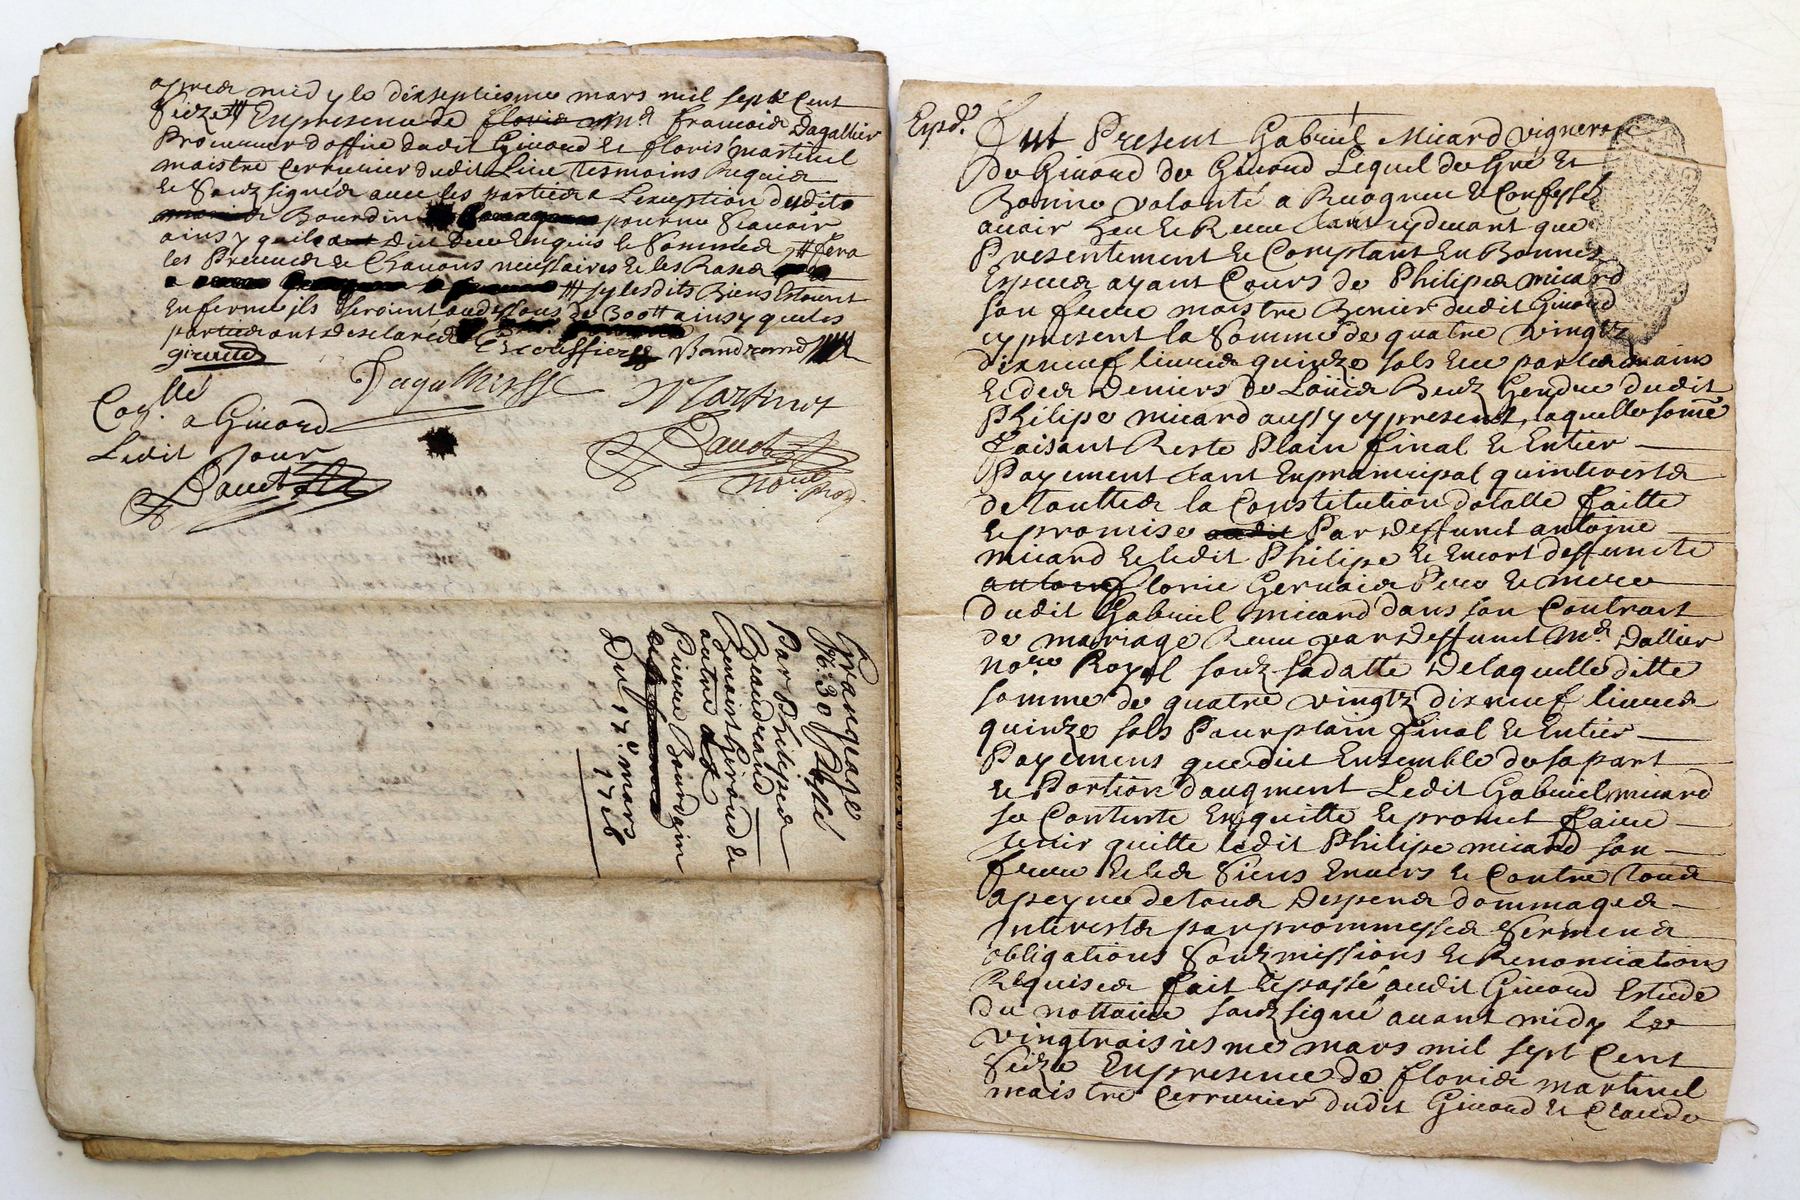 apres midy le dixseptiesme mars mil sept Cent
Seize /// En presence de M.e francois Dagallier
Procureur d'office dudit Givord & floris Martinel
maistre Cerrurier dudit Lieu tesmoins Requis
& Soubz signés avec les parties a L'exeption desdits
Bourdin pour ne Scavoir
ainsy quils ont dit Deue Enquis & Sommés /// fera
les Preuves & Chavons necessaires & les Rases
/// sy lesdits Biens Estoient
En ferme ils seroient au dessous de 300tt ainsy que les
parties ont desclaré Escouffier Vandrand
giraud
Dagallier
Martinel
Con.llé
a Givord
Ledit Jour
Dauot
Dauot
No.re Roy.
Grangeage
N.o 30 Passé
Par Philippes
Beaudrand
Benoist Giroud &
autre
Pierre Bourdain
Du 17.e mars
1716
Expd.
Fut Present Gabriel Micard vigneron
de Givord de Givord Lequel de Gré Et
Bonne volonté a Recogneu & Confessé
avoir heu & Receu tant cydevant que
Presentement & Comptant En Bonnes
Especes ayant Cours de Philipes micard
son frere maistre Benier dudit Givord
cy present la Somme de quatre vingtz
dix neuf livres quinze sols Eue par les mains
& des Deniers de Loüis Benz Gendre dudit
Philipe micard aussy cy present, laquelle some
faisant Reste Plain final & Entier
Payement tant En principal qu'interests
de toutte la Constitution dotalle faitte
& promise Par deffunct antoine
micard & ledit Philipe & Encore deffuncte
antoin florie Gervais Pere & mere
dudit Gabriel micard dans son Contract
de mariage Receu par deffunct M.e Dallier
No.re Royal soubz sa datte De laquelle ditte
somme de quatre vingtz dix neuf livres
quinze sols Pour plain final & Entier
Payement que dict Ensemble de sa part
& Portion d'augment Ledit Gabriel micard
se Contente En quitte & promet faire
tenir quitte ledit Philipe micard son
frere & les Siens Envers & Contre tous
a peyne de tous Despens dommages
Interests par prommesses Sermens
obligations Soubzmissions & Renonciations
Requises fait & passé audit Givord Estude
du nottaire soubz signé avant midy Le
vingtroisiesme mars mil sept Cent
Seize En presence de floris martinel
maistre Cerrurier dudit Givord & Claude